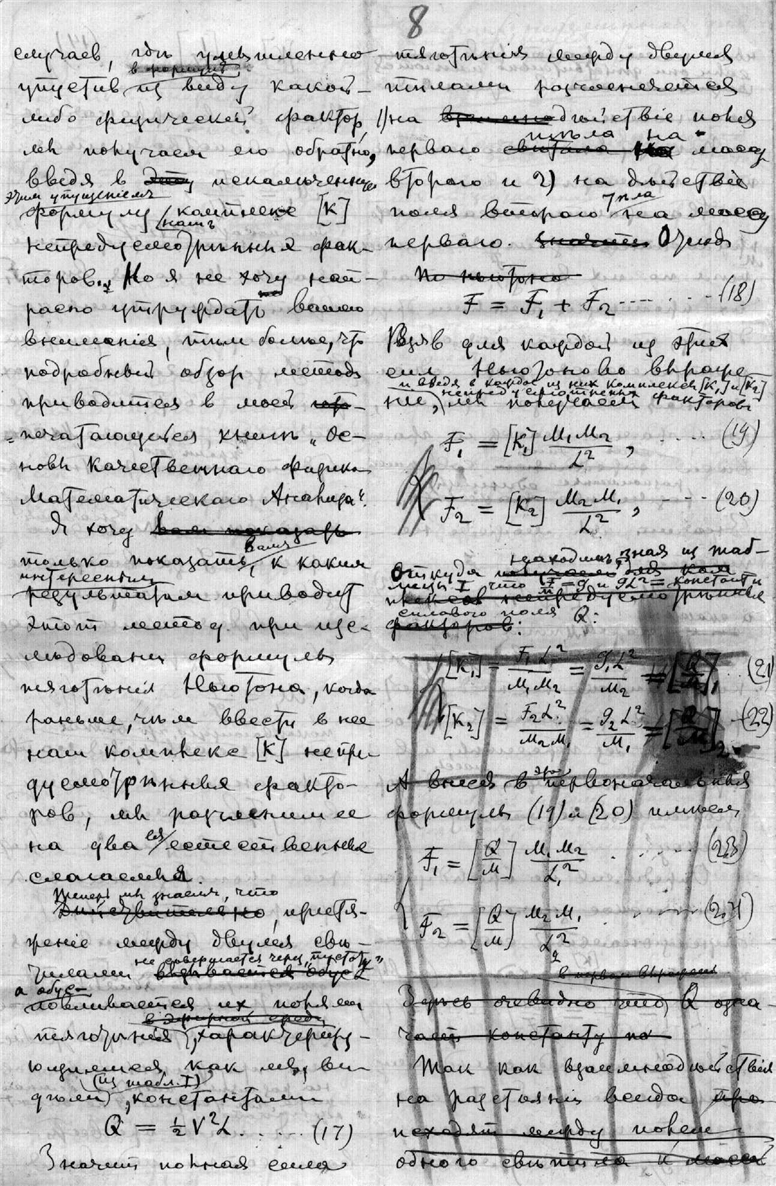 8
случаев, где умышленно
упустив из виду какой-
либо физический фактор,
мы получаем его обратно,
введя в искалеченную
этим упущением
формулу комплекс [К]
непредусмотренныя фак-
торов. Но я не хочу нап-
расно утруждать вашего
внимания, тем более, что
подробный обзор метода
приводится в моей
печатающейся книге „Ос-
новы Качественнаго Физико
Математическаго Анализа“.
Я хочу
только показать вам, к каким
интересным
результатам приводит
этот метод при изс-
ледовании формулы
тяготения Ньютона, когда
раньше, чем ввести в нее
наш комплекс [К] непре
дусмотренныя факто-
ров, мы расчленим ее
на два ея естественныя
слагаемыя.
Теперь мы знаем, что
притя-
жение между двумя све-
тилами не совершается через „пустоту“
а обус-
ловливается их полем
тяготения, характеризу-
ющимся, как мы ви-
дели (из табл. I), константами
Q = ½ V²L ..... (17)
Значит полная сила
тяготения между двумя
телами расчленяется
1) на действие поля
перваго тела на массу
второго и 2) на действие
поля второго тела на массу
перваго. Отсюда
F = F₁ + F₂ ------ (18)
Взяв для каждой из этих
сил Ньютоново выраже
и введя в каждое из них комплексы [К₁] и [К₂]
непредусмотренныя факторов
ние, мы получаем
F₁ = [К₁] М₁М₂/L², ---- (19)
F₂ = [К₂] М₂М₁/L², ---- (20)
Откуда находим, зная из таб-
лицы I, что F/m = g, и gL² = константе
силового поля Q:
[К₁] = F₁L²/М₁М₂ = g₁L²/М₂ = [Q/М]₁ .. (21)
[К₂] = F₂L²/М₂М₁ = g₂L²/М₁ = [Q/М]₂ - (22)
А внеся в первоначальныя
формулы (19) и (20) имеем
F₁ = [Q/М] М₁М₂/L₁² ...... (23)
F₂ = [Q/М] М₂М₁/L₂² ...... (24)
в первом выражении
Здесь очевидно что Q озна-
чает константу по
Так как взаимнодействия
на разстоянии всегда про-
исходят между полем
одного светила и массой